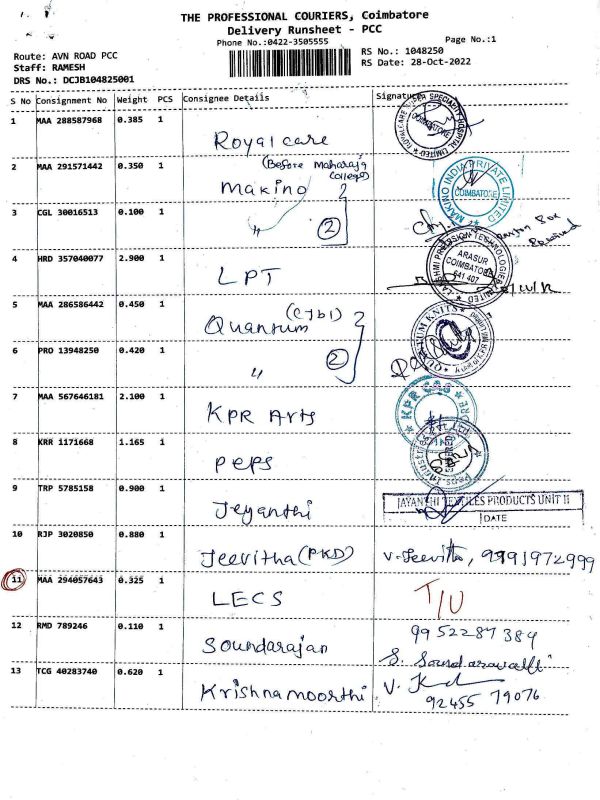 THE PROFESSIONAL COURIERS, Coimbatore
Delivery Runsheet - PCC
Phone No.:0422-3505555
Page No.:1
Route: AVN ROAD PCC
RS No.: 1048250
Staff: RAMESH
RS Date: 28-Oct-2022
DRS No.: DCJB104825001
S No Consignment No Weight PCS Consignee Details Signature
1 MAA 288587968 0.385 1 Royal care
ROYALCARE SUPER SPECIALITY HOSPITAL LIMITED COIMBATORE
2 MAA 291571442 0.350 1 Makino (Before Maharaja College)
MAKINO INDIA PRIVATE LIMITED COIMBATORE
3 CGL 30016513 0.100 1 " 2
Received
4 HRD 357040077 2.900 1 LPT
LAKSHMI PRECISION TECHNOLOGIES LIMITED ARASUR COIMBATORE 641 407
5 MAA 286586442 0.450 1 Quantum (CJB1)
QUANTUM KNITS
6 PRO 13948250 0.420 1 " 2
7 MAA 567646181 2.100 1 KPR Arts
KPR
8 KRR 1171668 1.165 1 Peps
Peps Industries
9 TRP 5785158 0.900 1 Jeyanthi
JAYANTHI TEXTILES PRODUCTS UNIT II
DATE
10 RJP 3020850 0.880 1 Jeevitha (PKD) V. Jeevitha, 99919 72999
11 MAA 294057643 0.325 1 LECS T/U
12 RMD 789246 0.110 1 Soundarajan 9952287384
S. Soundaravalli
13 TCG 40283740 0.620 1 Krishnamoorthi V.
92455 79076